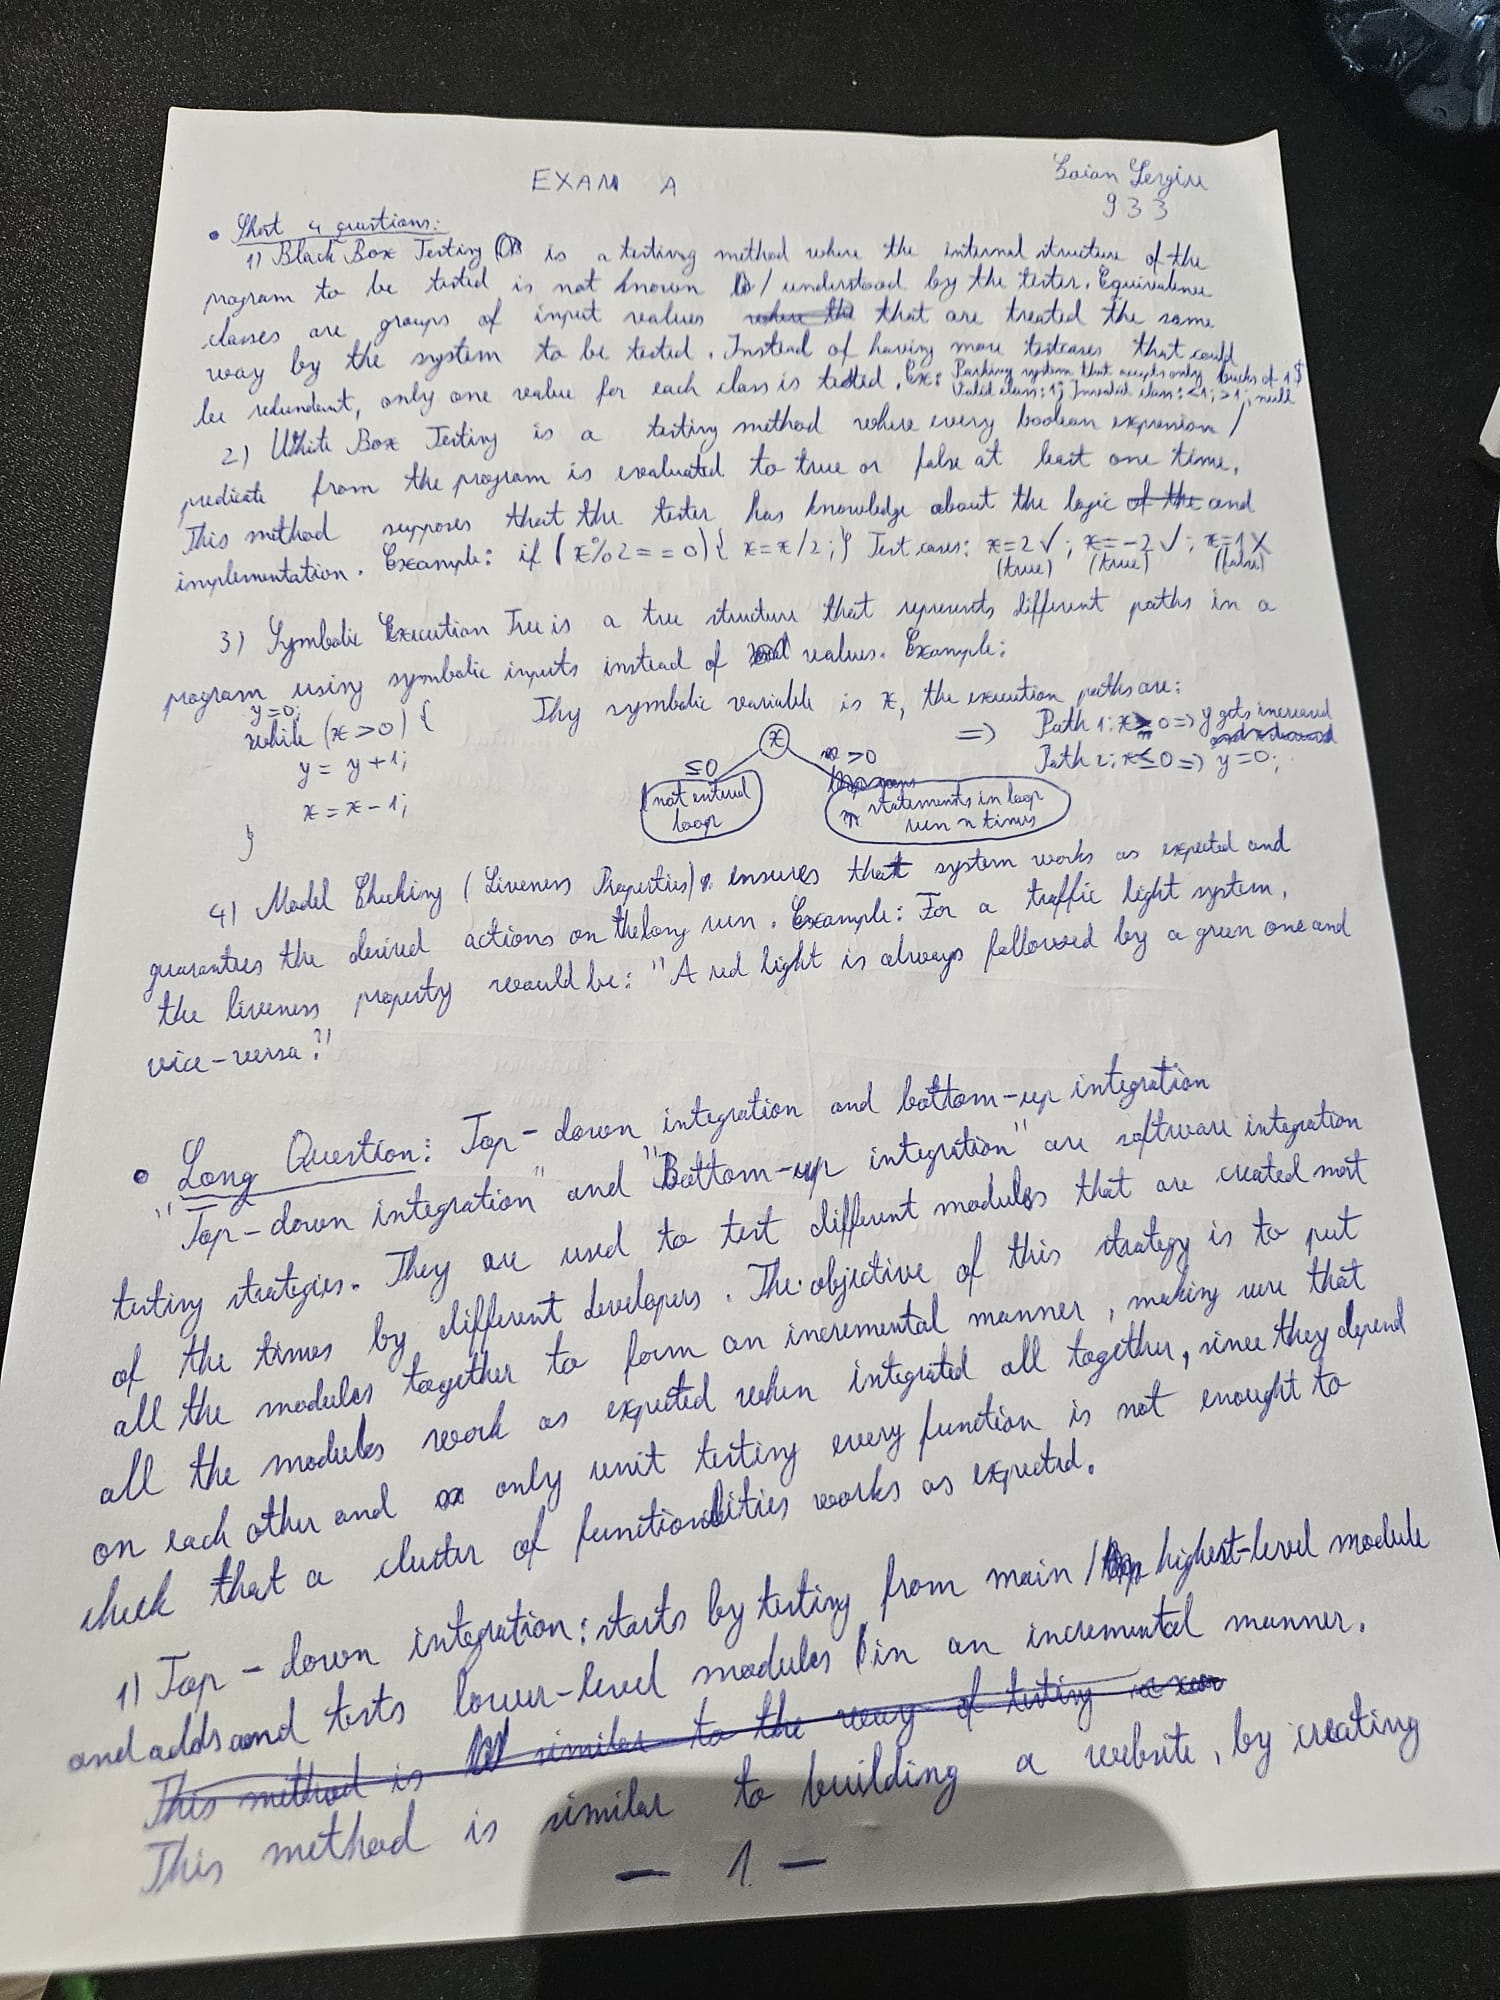 EXAM A
933
• Short 4 questions:
1) Black Box Testing is a testing method where the internal structure of the
program to be tested is not known / understood by the tester. Equivalence
classes are groups of input values that are treated the same
way by the system to be tested. Instead of having more testcases that could
be redundant, only one value for each class is tested. Ex: Parking system that accepts only bucks of 1$
Valid class: 1; Invalid class: <1; >1; null
2) White Box Testing is a testing method where every boolean expression /
predicate from the program is evaluated to true or false at least one time.
This method supposes that the tester has knowledge about the logic and
implementation. Example: if (x%2==0){ x=x/2;} Test cases: x=2 ✓; x=-2 ✓; x=1 X
(true) (true) (false)
3) Symbolic Execution Tree is a tree structure that represents different paths in a
program using symbolic inputs instead of values. Example:
y=0;
while (x>0) {
y = y+1;
x = x-1;
}
symbolic variable is x, the execution paths are:
x
≤0
>0
not entered
loop
statements in loop
run n times
=> Path 1: x 0 => y gets increased
Path 2: x≤0 => y=0;
4) Model Checking (Liveness Properties) ensures that system works as expected and
guarantees the desired actions on the long run. Example: For a traffic light system,
the liveness property would be: "A red light is always followed by a green one and
vice-versa."
• Long Question: Top-down integration and bottom-up integration
"Top-down integration" and "Bottom-up integration" are software integration
testing strategies. They are used to test different modules that are created most
of the times by different developers. The objective of this strategy is to put
all the modules together to form an incremental manner, making sure that
all the modules work as expected when integrated all together, since they depend
on each other and only unit testing every function is not enought to
check that a cluster of functionalities works as expected.
1) Top-down integration: starts by testing from main / highest-level module
and adds and tests lower-level modules in an incremental manner.
This method is similar to the way of testing a
This method is similar to building a website, by creating
— 1 —